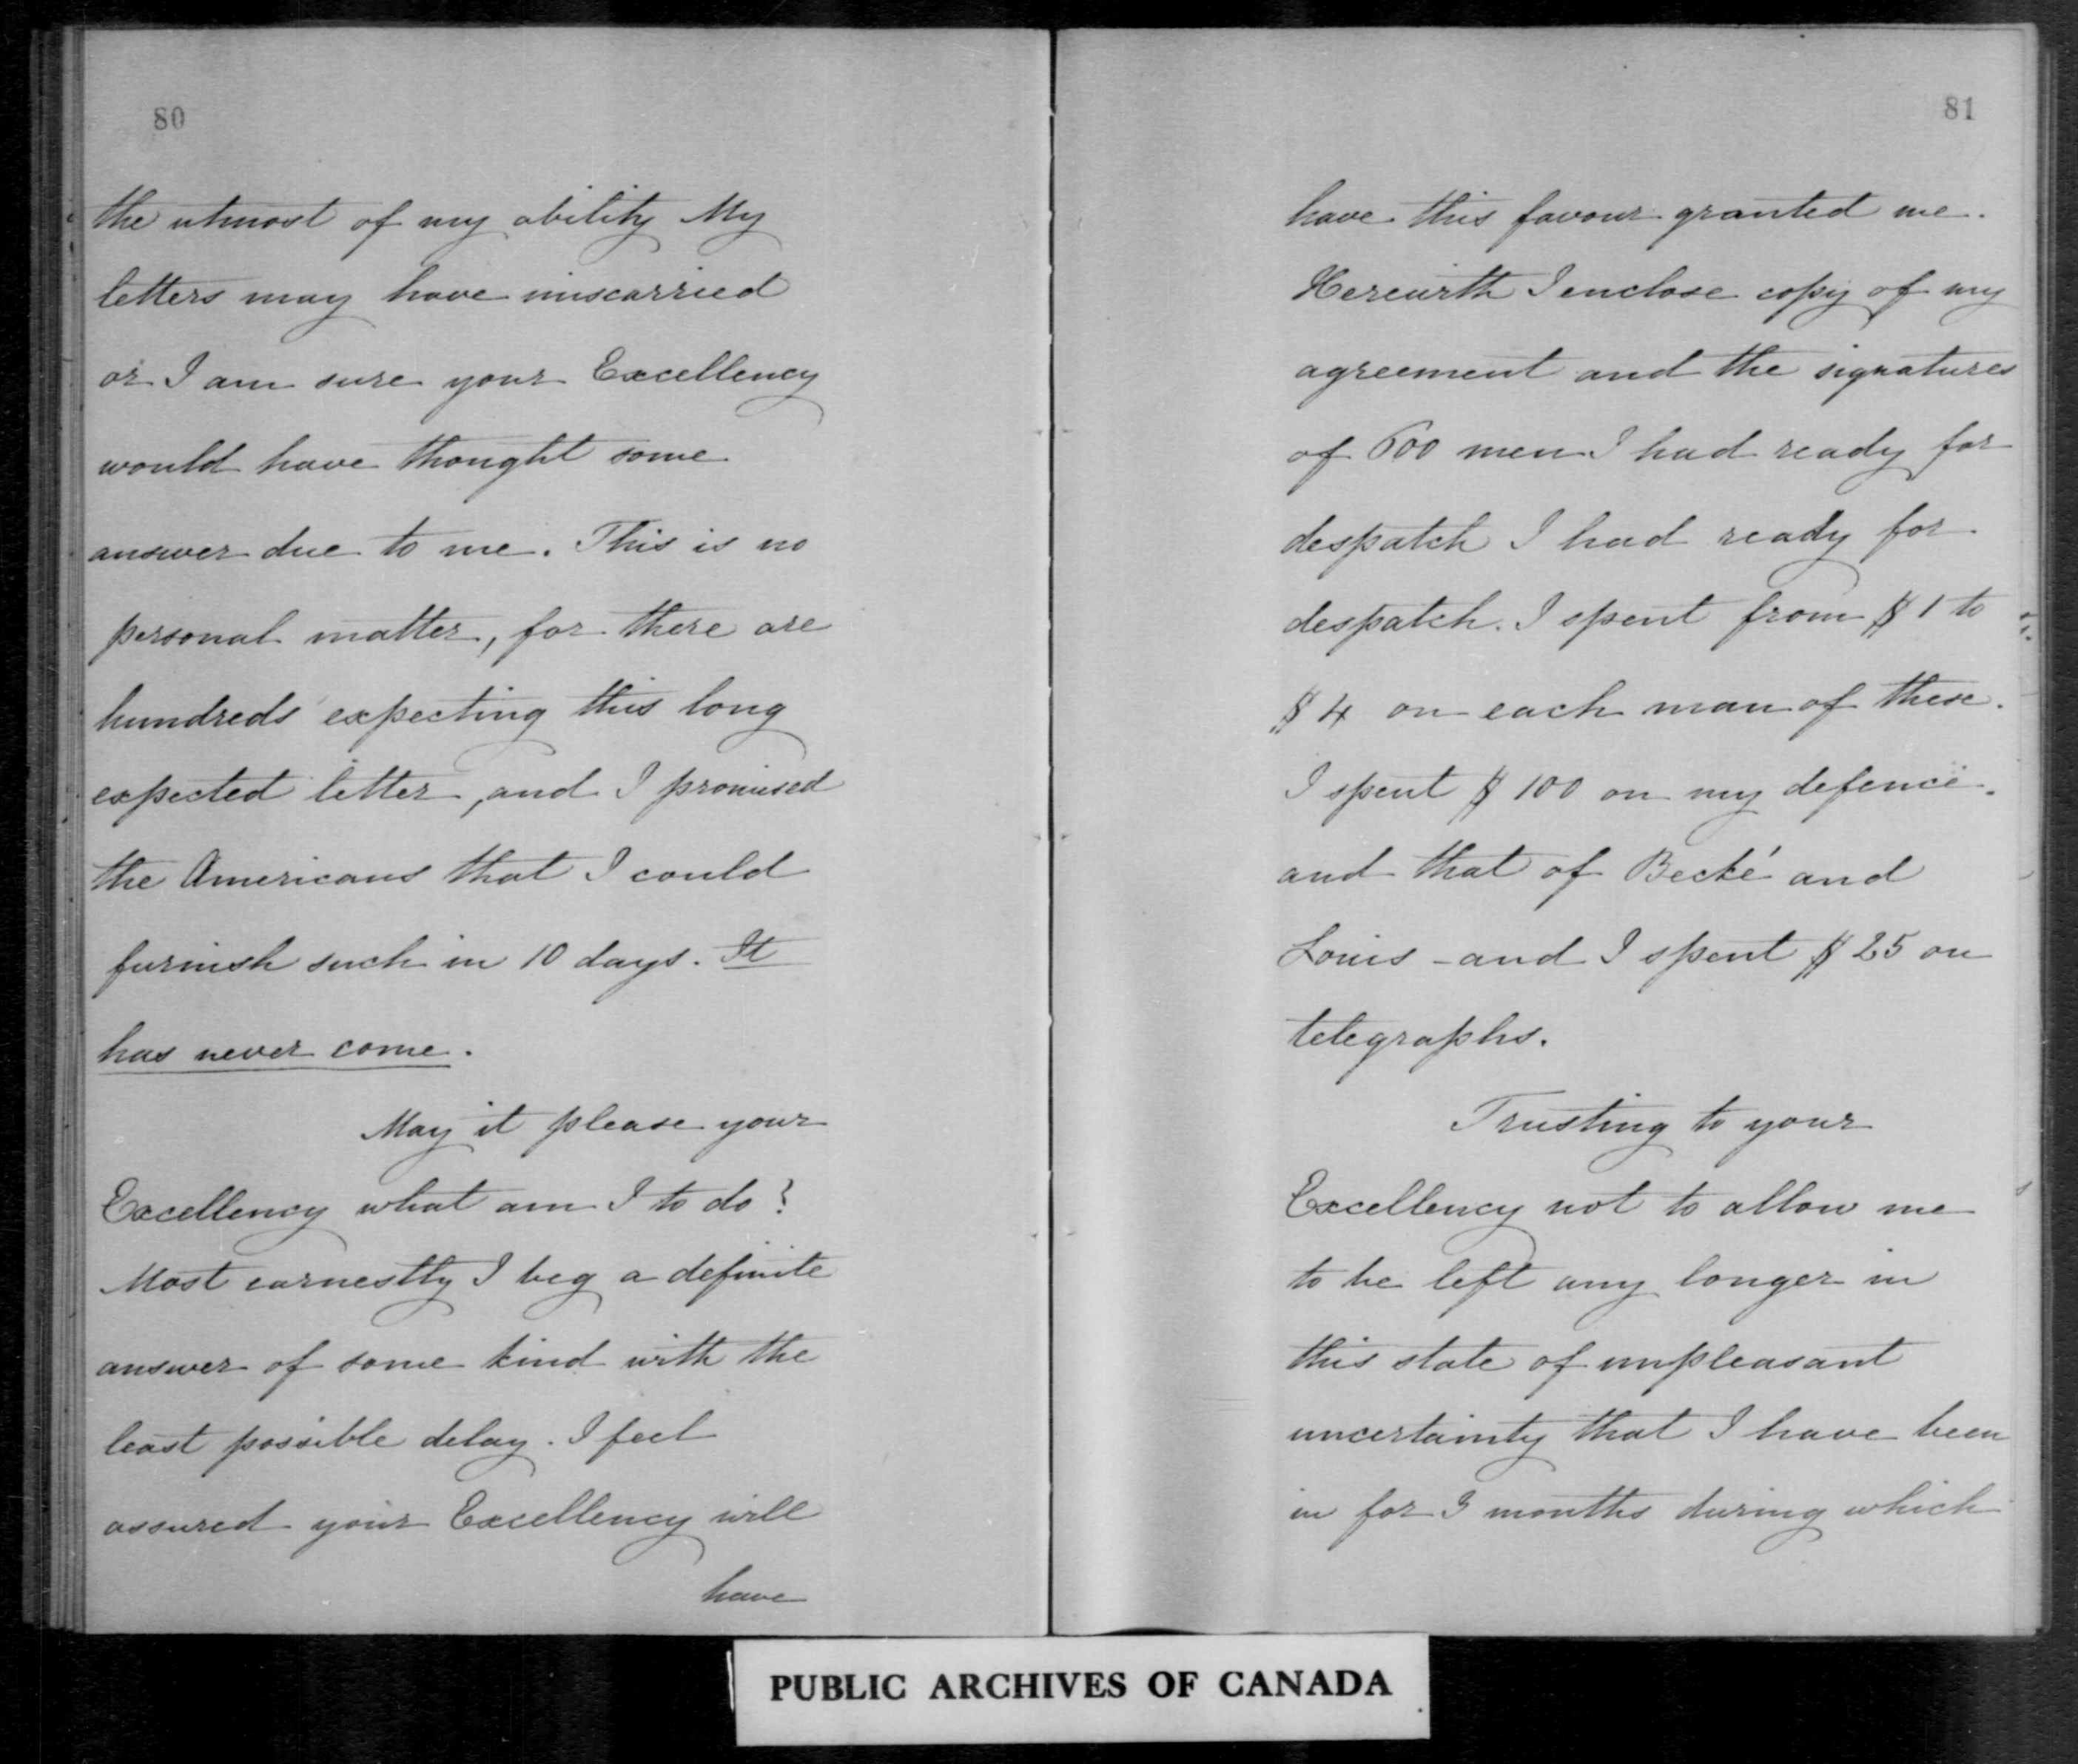 80
the utmost of my ability My
letters may have miscarried
or I am sure your Excellency
would have thought some
answer due to me. This is no
personal matter, for there are
hundreds expecting this long
expected letter, and I promised
the Americans that I could
furnish such in 10 days. It
has never come.
May it please your
Excellency what am I to do?
Most earnestly I beg a definite
answer of some kind with the
least possible delay. I feel
assured your Excellency will
have
81
have this favour granted me.
Herewith I enclose copy of my
agreement and the signatures
of 600 men I had ready for
despatch I had ready for
despatch. I spent from $1 to
$4 on each man of these.
I spent $100 on my defence
and that of Becké and
Louis - and I spent $25 on
telegraphs.
Trusting to your
Excellency not to allow me
to be left any longer in
this state of unpleasant
uncertainty that I have been
in for 3 months during which
PUBLIC ARCHIVES OF CANADA